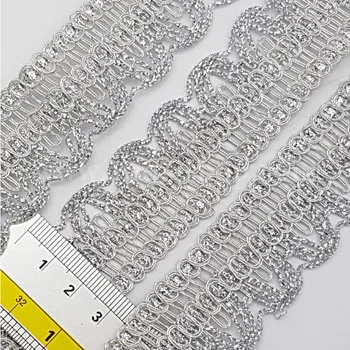 1 2 3
32
1